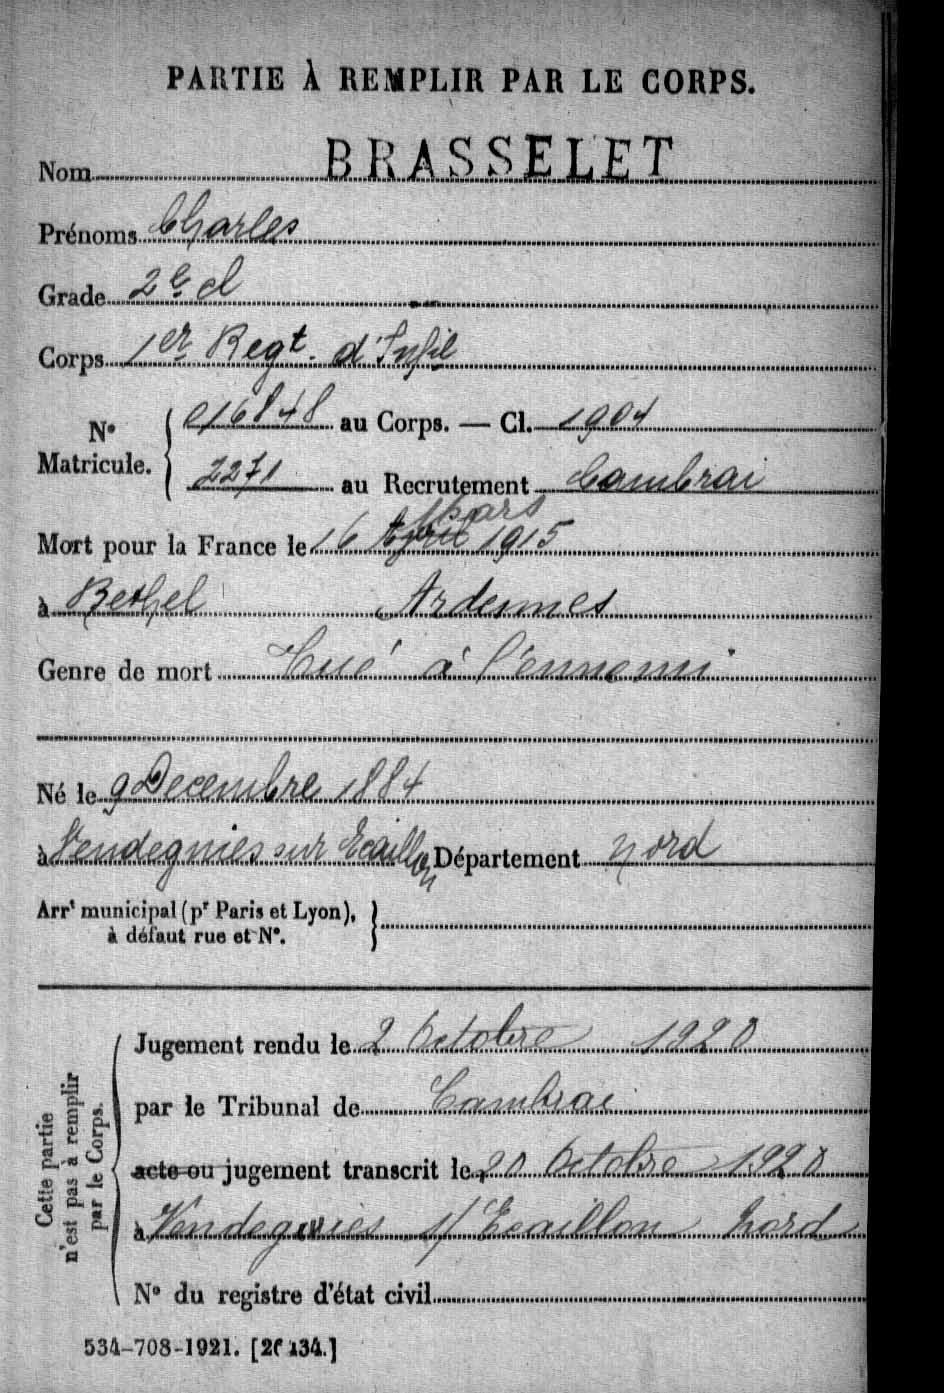 PARTIE À REMPLIR PAR LE CORPS.
Nom BRASSELET
Prénoms Charles
Grade 2e cl
Corps 1er Regt. d'Infie
No Matricule. { 016848 au Corps. — Cl. 1904
2271 au Recrutement Cambrai
Mars
Mort pour la France le 16 Avril 1915
à Rethel Ardennes
Genre de mort Tué à l'ennemi
Né le 9 Decembre 1884
à Vendegnies sur Ecaillon Département Nord
Arrt municipal (pr Paris et Lyon), }
à défaut rue et No.
Cette partie n'est pas à remplir par le Corps.
Jugement rendu le 2 Octobre 1920
par le Tribunal de Cambrai
acte ou jugement transcrit le 20 Octobre 1920
à Vendegnies s/ Ecaillon Nord
No du registre d'état civil
534-708-1921. [26134.]